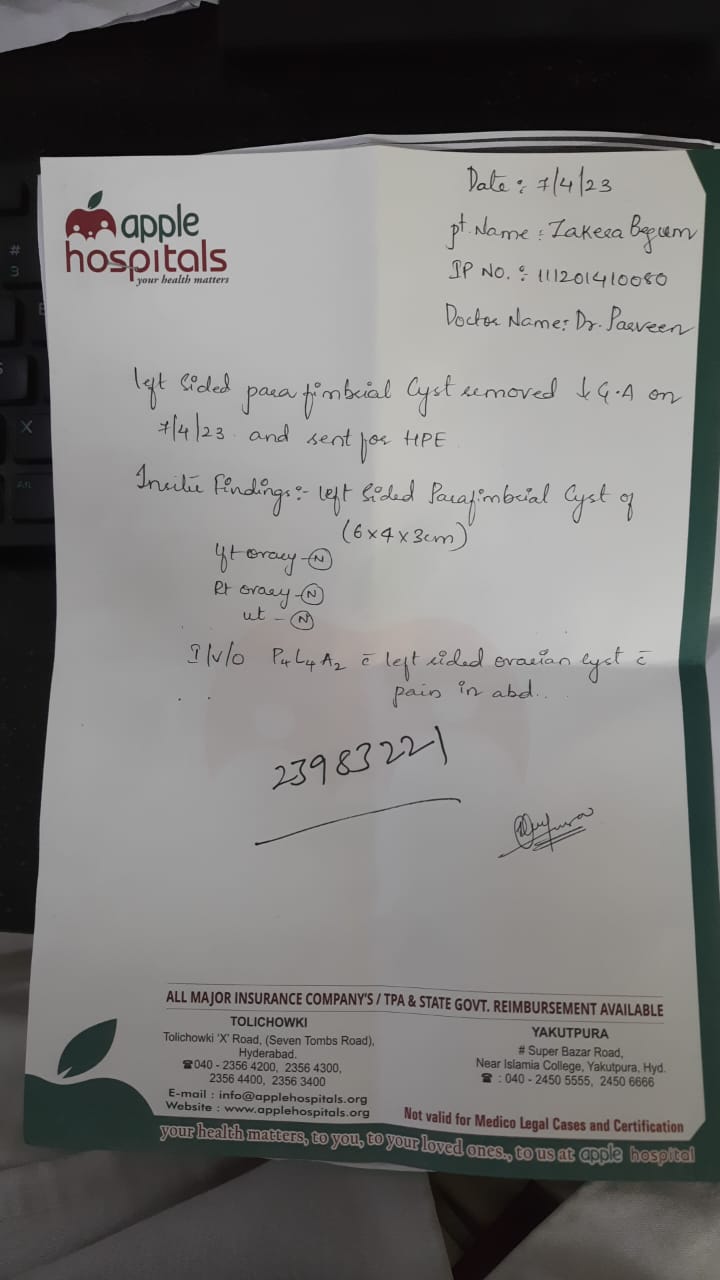 apple
hospitals
your health matters
Date : 7/4/23
pt. Name : Zakera Begum
IP NO. : 111201410080
Doctor Name: Dr. Parveen
left sided para fimbrial Cyst removed ↓ G.A on
7/4/23 and sent for HPE
Insitu Findings:- left sided Parafimbrial Cyst of
(6x4x3cm)
Lft ovary - N
Rt ovary - N
ut - N
I/v/o P4L4A2 c̄ left sided ovarian cyst c̄
pain in abd..
23983221
ALL MAJOR INSURANCE COMPANY'S / TPA & STATE GOVT. REIMBURSEMENT AVAILABLE
TOLICHOWKI
Tolichowki 'X' Road, (Seven Tombs Road),
Hyderabad.
☎040 - 2356 4200, 2356 4300,
2356 4400, 2356 3400
E-mail : info@applehospitals.org
Website : www.applehospitals.org
YAKUTPURA
# Super Bazar Road,
Near Islamia College, Yakutpura, Hyd.
☎ : 040 - 2450 5555, 2450 6666
Not valid for Medico Legal Cases and Certification
your health matters, to you, to your loved ones., to us at apple hospital
#
3
X